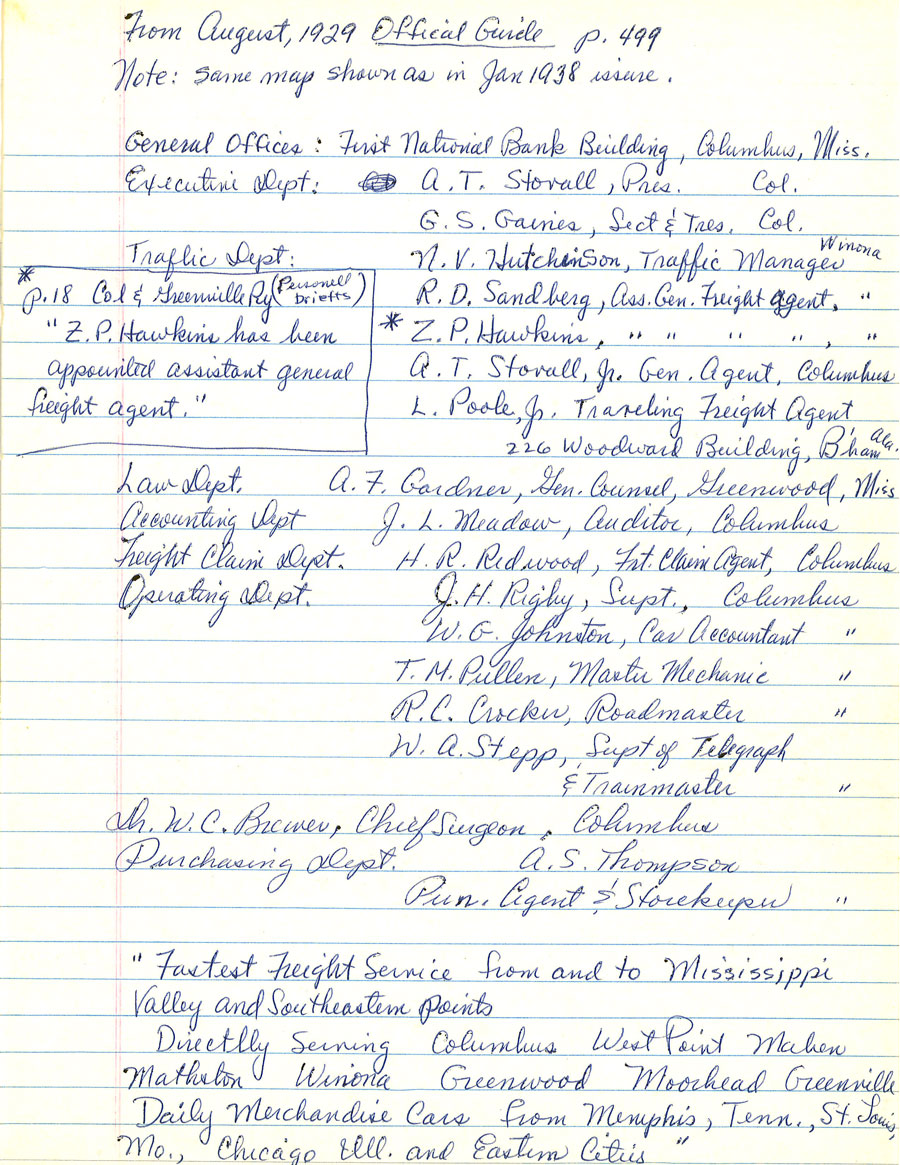 From August, 1929 Offical Guide p. 499
Note: same map shown as in Jan 1938 issure.
General Offices: First National Bank Building, Columbus, Miss.
Executive Dept: A. T. Stovall, Pres. Col.
G. S. Gaines, Sect & Tres. Col.
Traffic Dept: N. V. Hutchinson, Traffic Manager Winona
R. D. Sandberg, Ass. Gen. Freight agent, "
* Z. P. Hawkins, " " " " , "
A. T. Stovall, Jr. Gen. Agent, Columbus
L. Poole, Jr. Traveling Freight Agent
226 Woodward Building, B'ham Ala.
*
p. 18 Col & Greenville Ry (Personell briefts)
"Z. P. Hawkins has been
appointed assistant general
freight agent."
Law Dept. A. F. Gardner, Gen. Counsel, Greenwood, Miss
Accounting Dept J. L. Meadow, Auditor, Columbus
Freight Claim Dept. H. R. Redwood, Frt. Claim Agent, Columbus
Operating Dept. J. H. Rigby, Supt., Columbus
W. G. Johnston, Car Accountant "
T. M. Pullen, Master Mechanic "
R. C. Crocker, Roadmaster "
W. A. Stepp, Supt of Telegraph
& Trainmaster "
Dr. W. C. Brewer, Chief Surgeon, Columbus
Purchasing Dept. A. S. Thompson
Purn. Agent & Storekeeper "
"Fastest Freight Service from and to Mississippi
Valley and Southeastern points
Directlly Serving Columbus West Point Maben
Mathston Winona Greenwood Moorhead Greenville
Daily Merchandise Cars from Memphis, Tenn., St. Louis,
Mo., Chicago Ill. and Eastern Cities"